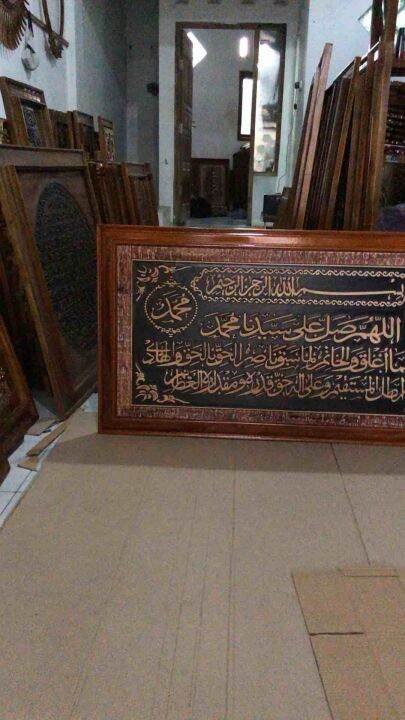 محمد
بسم الله الرحمن الرحيم
اللهم صل على سيدنا محمد
أغلق والخاتم لما سبق ناصر الحق بالحق والهادي
المستقيم وعلى اله حق قدره ومقداره العظيم